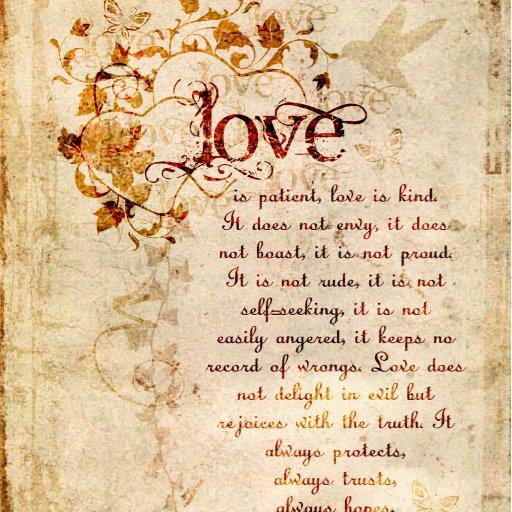 love
is patient, love is kind.
It does not envy, it does
not boast, it is not proud.
It is not rude, it is not
self-seeking, it is not
easily angered, it keeps no
record of wrongs. Love does
not delight in evil but
rejoices with the truth. It
always protects,
always trusts,
always hopes,